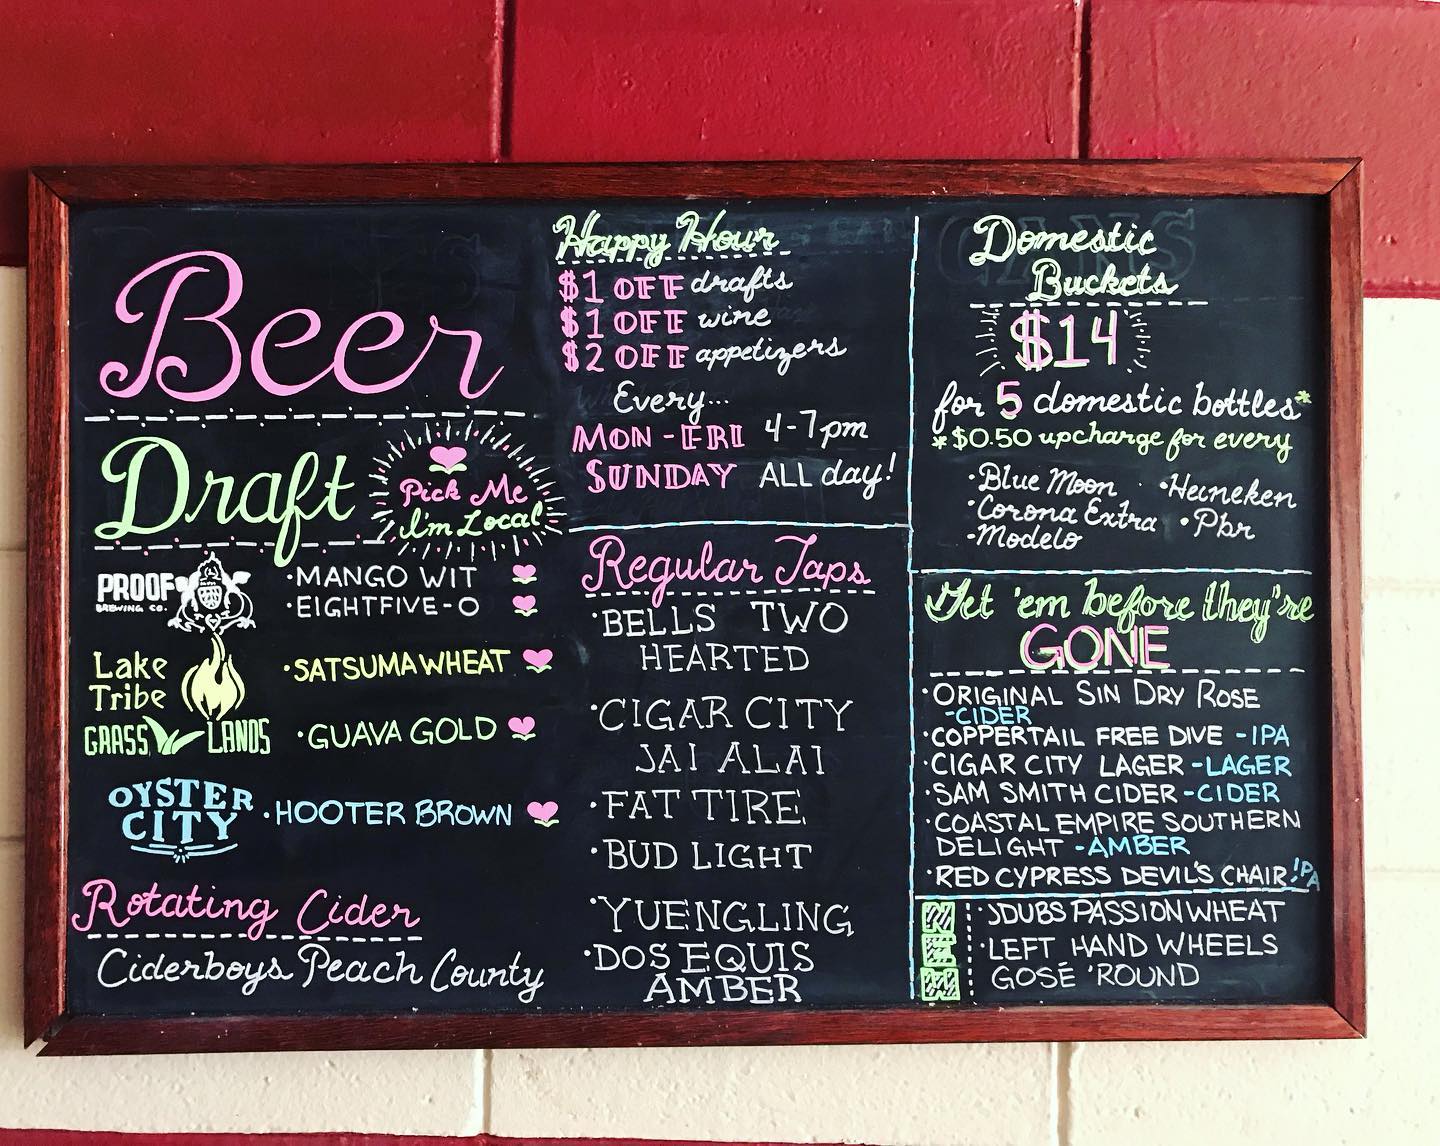 Beer
Draft
Pick Me
I'm Local
PROOF
BREWING CO.
·MANGO WIT
·EIGHTFIVE-O
Lake
Tribe
·SATSUMA WHEAT
GRASS LANDS
·GUAVA GOLD
OYSTER
CITY
·HOOTER BROWN
Rotating Cider
Ciderboys Peach County
Happy Hour
$1 OFF drafts
$1 OFF wine
$2 OFF appetizers
Every...
MON-FRI 4-7pm
SUNDAY ALL day!
Regular Taps
·BELLS TWO
HEARTED
·CIGAR CITY
JAI ALAI
·FAT TIRE
·BUD LIGHT
·YUENGLING
·DOS EQUIS
AMBER
Domestic
Buckets
$14
for 5 domestic bottles*
*$0.50 upcharge for every
·Blue Moon ·Heineken
·Corona Extra ·Pbr
·Modelo
Get 'em before they're
GONE
·ORIGINAL SIN DRY ROSE
-CIDER
·COPPERTAIL FREE DIVE -IPA
·CIGAR CITY LAGER -LAGER
·SAM SMITH CIDER -CIDER
·COASTAL EMPIRE SOUTHERN
DELIGHT -AMBER
·RED CYPRESS DEVIL'S CHAIR IPA
NEW
·JDUBS PASSION WHEAT
·LEFT HAND WHEELS
GOSÉ 'ROUND